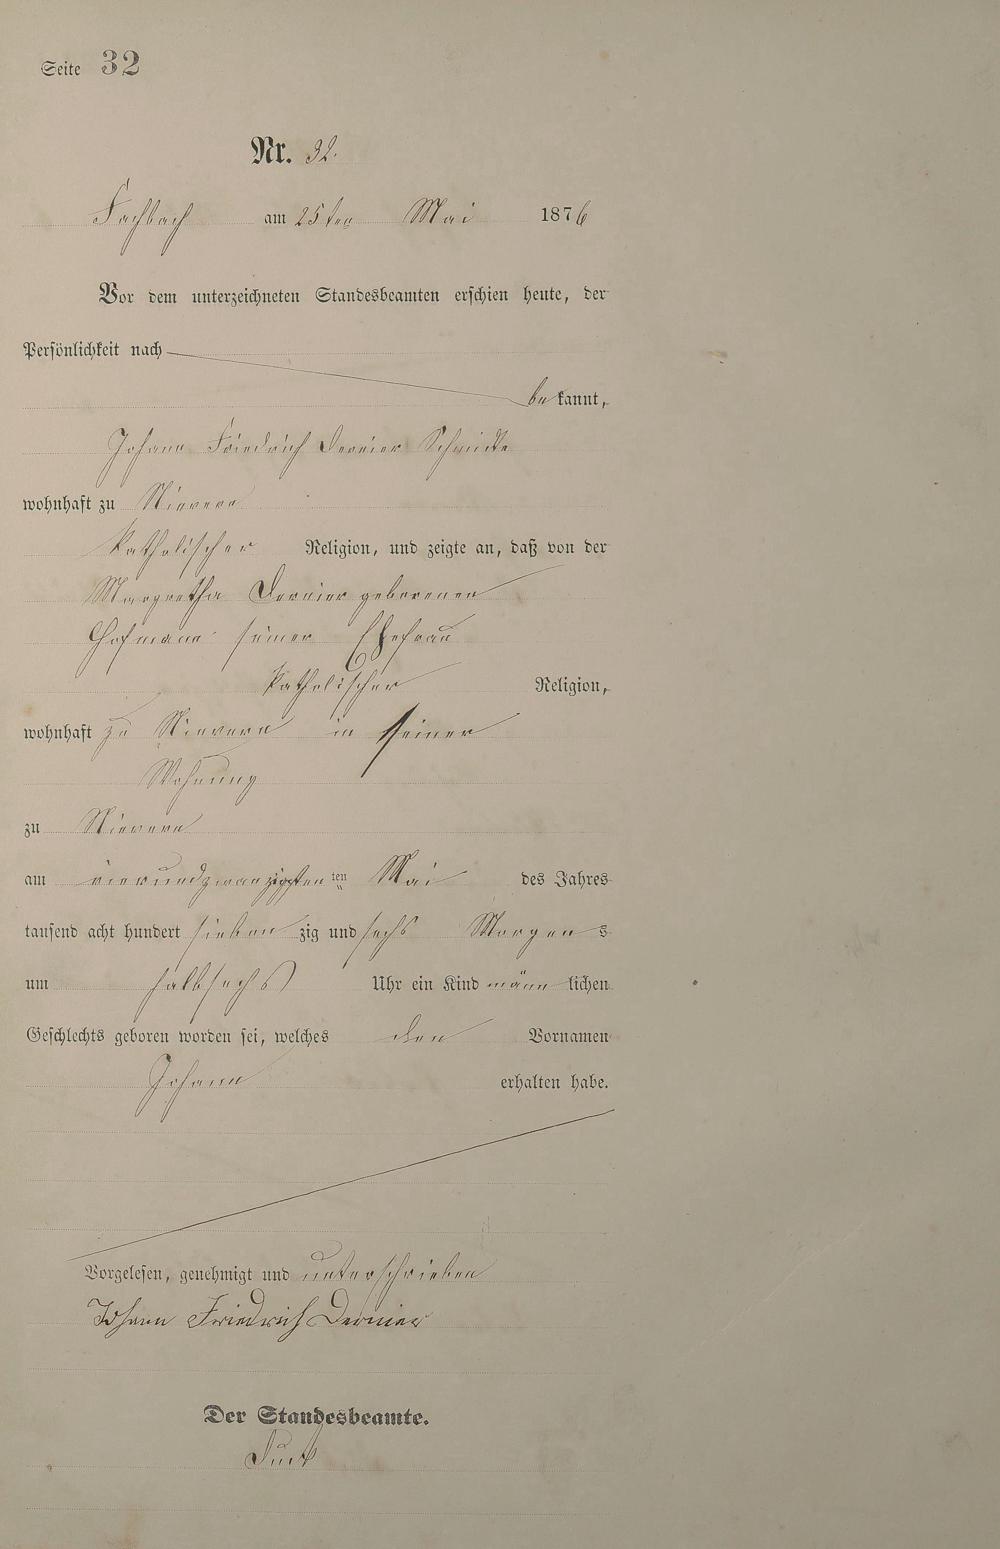 Seite 32
Nr. 32.
Fachbach am 25ten Mai 1876
Vor dem unterzeichneten Standesbeamten erschien heute, der
Persönlichkeit nach
bekannt,
Johann Friedrich Dernier Schmidte
wohnhaft zu Nievern
katholischer Religion, und zeigte an, daß von der
Margretha Dernier geborenen
Hofmann seiner Ehefrau
katholischer Religion,
wohnhaft zu Nievern in seiner
Wohnung
zu Nievern
am vierundzwanzigsten ten Mai des Jahres
tausend acht hundert siebenzig und sechs Morgens
um halbsechs Uhr ein Kind männlichen
Geschlechts geboren worden sei, welches den Vornamen
Johann erhalten habe.
Vorgelesen, genehmigt und unterschrieben
Johann Friedrich Dernier
Der Standesbeamte.